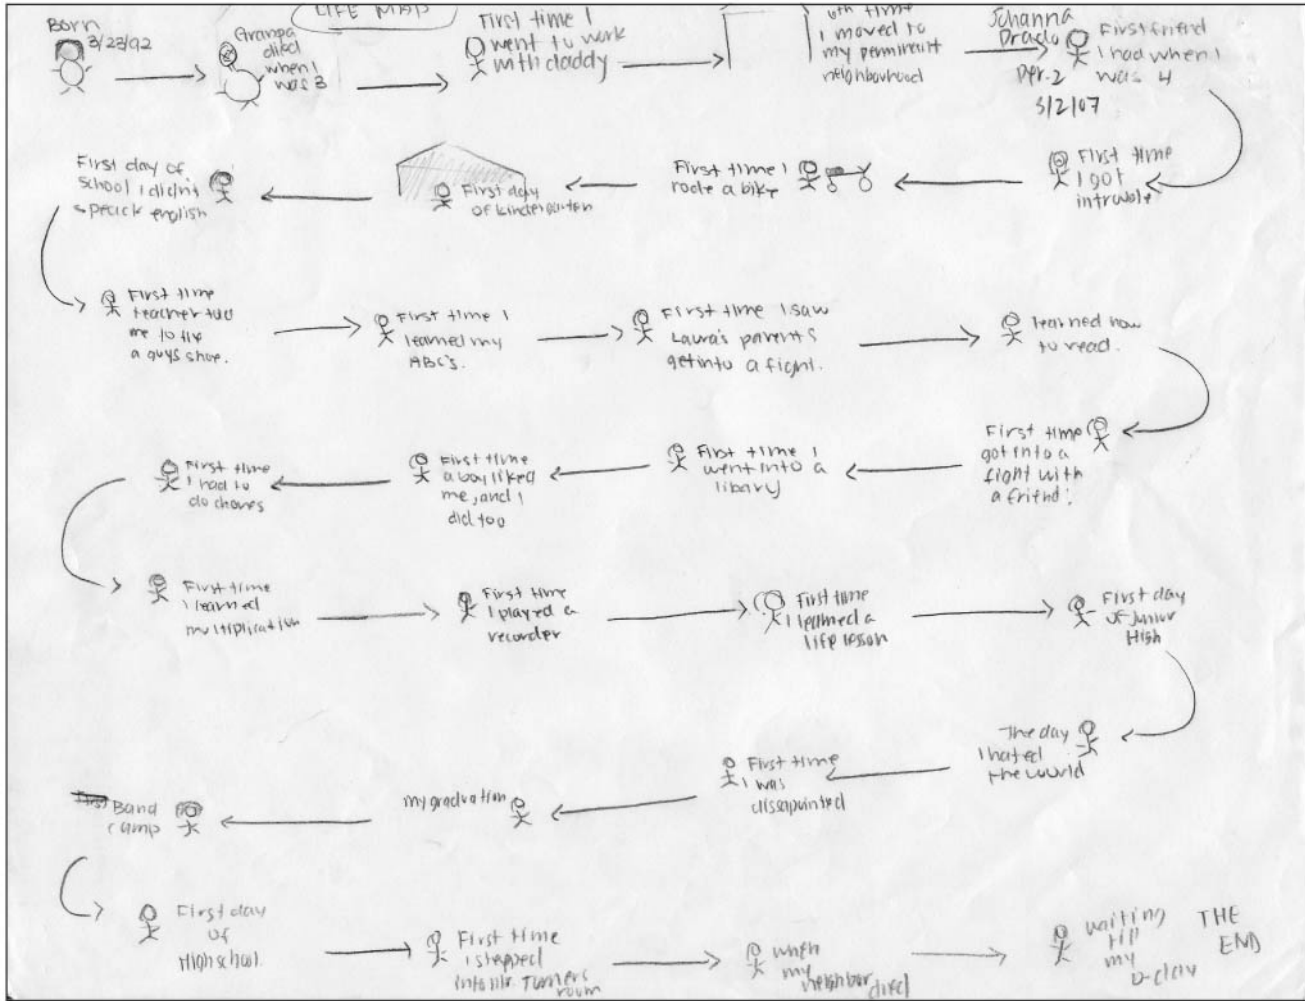 LIFE MAP
Born
3/23/92
Grampa
died
when I
was 3
First time I
went to work
with daddy
time
I moved to
my permineutt
neighborhood
Johanna
Prado
Per. 2
3/2/07
First friend
I had when I
was 4
First time
I got
introuble
First time I
rode a bike
First day
of kindergarten
First day of
school I didn't
speack english
First time
teacher told
me to tie
a guys shoe.
First time I
learned my
ABC's.
First time I saw
Laura's parents
get into a fight.
learned how
to read.
First time
got into a
fight with
a friend.
First time I
went into a
libary
First time
a boy liked
me, and I
did too
First time
I had to
do chores
First time
I learned
multiplication
First time
I played a
recorder
First time
I learned a
life lesson
First day
of Junior
High
The day
I hated
the world
First time
I was
dissapointed
my graduation
First Band
camp
First day
of
High school.
First time
I stepped
into Mr. Turners
room
when
my
neighbor died
waiting
till
my
D-day
THE
END